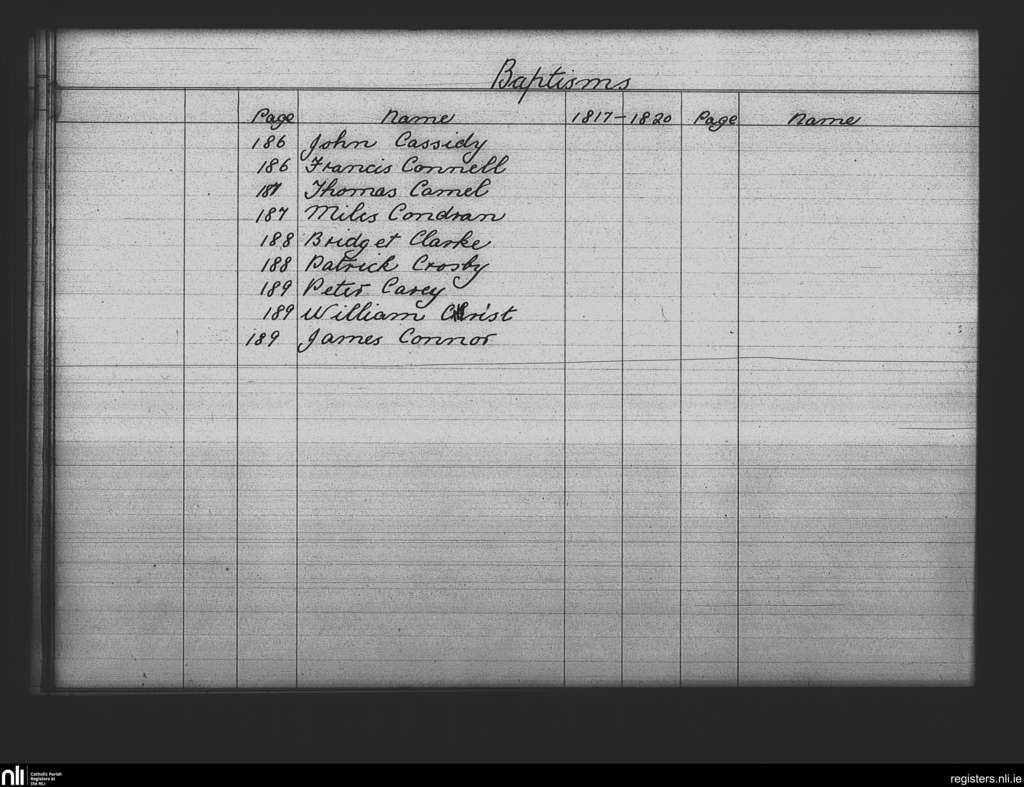 Baptisms
Page Name 1817-1820 Page Name
186 John Cassidy
186 Francis Connell
187 Thomas Camel
187 Miles Condran
188 Bridget Clarke
188 Patrick Crosby
189 Peter Carey
189 William Christ
189 James Connor
nli Catholic Parish
Registers at
the NLI
registers.nli.ie